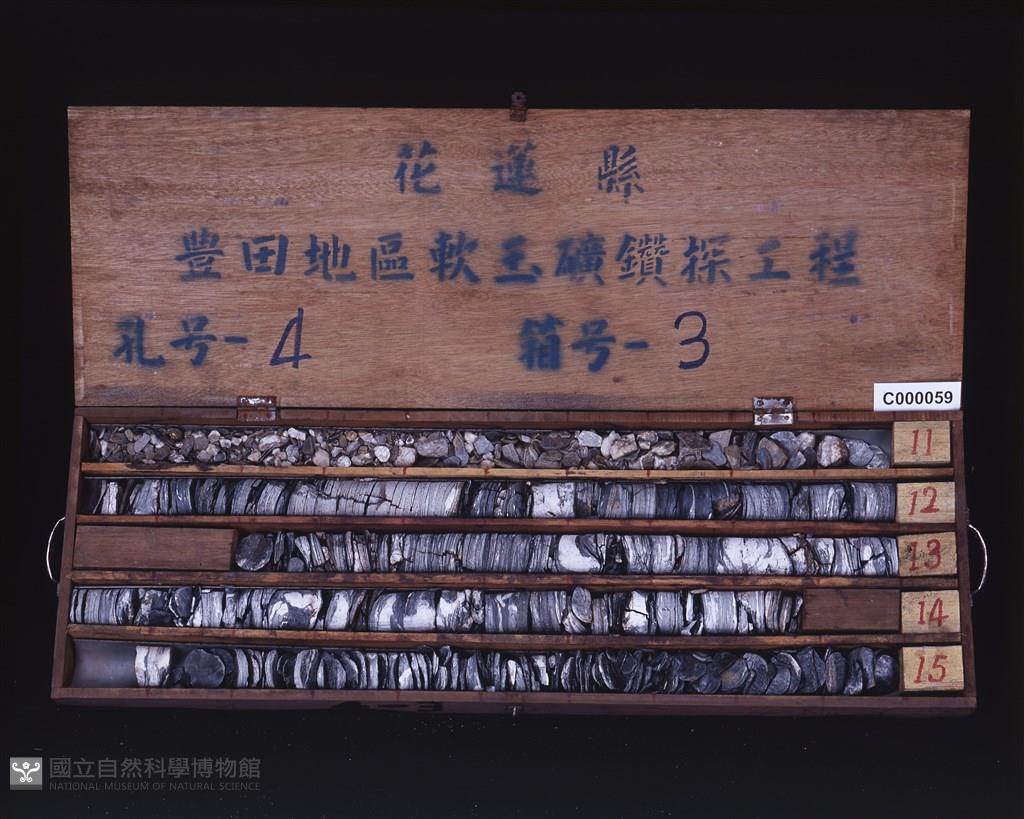 花蓮縣
豐田地區軟玉礦鑽探工程
孔号-4 箱号-3
C000059
11
12
13
14
15
國立自然科學博物館
NATIONAL MUSEUM OF NATURAL SCIENCE